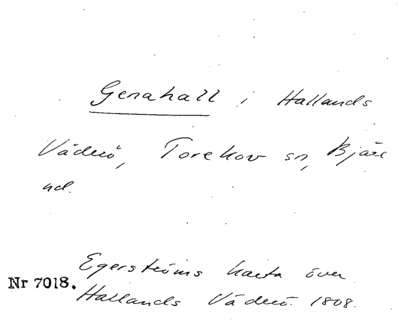 Genahall i Hallands
Väderö, Torekov sn, Bjäre
hd.
Egerströms karta över
Nr 7018.
Hallands Väderö. 1808.